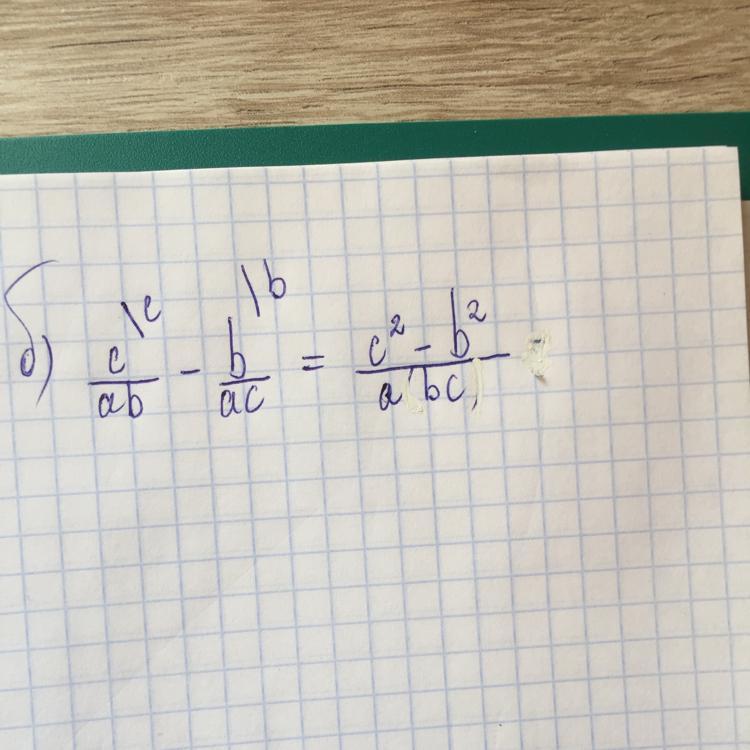 б) c\c/ab - b\b/ac = c² - b²/abc -